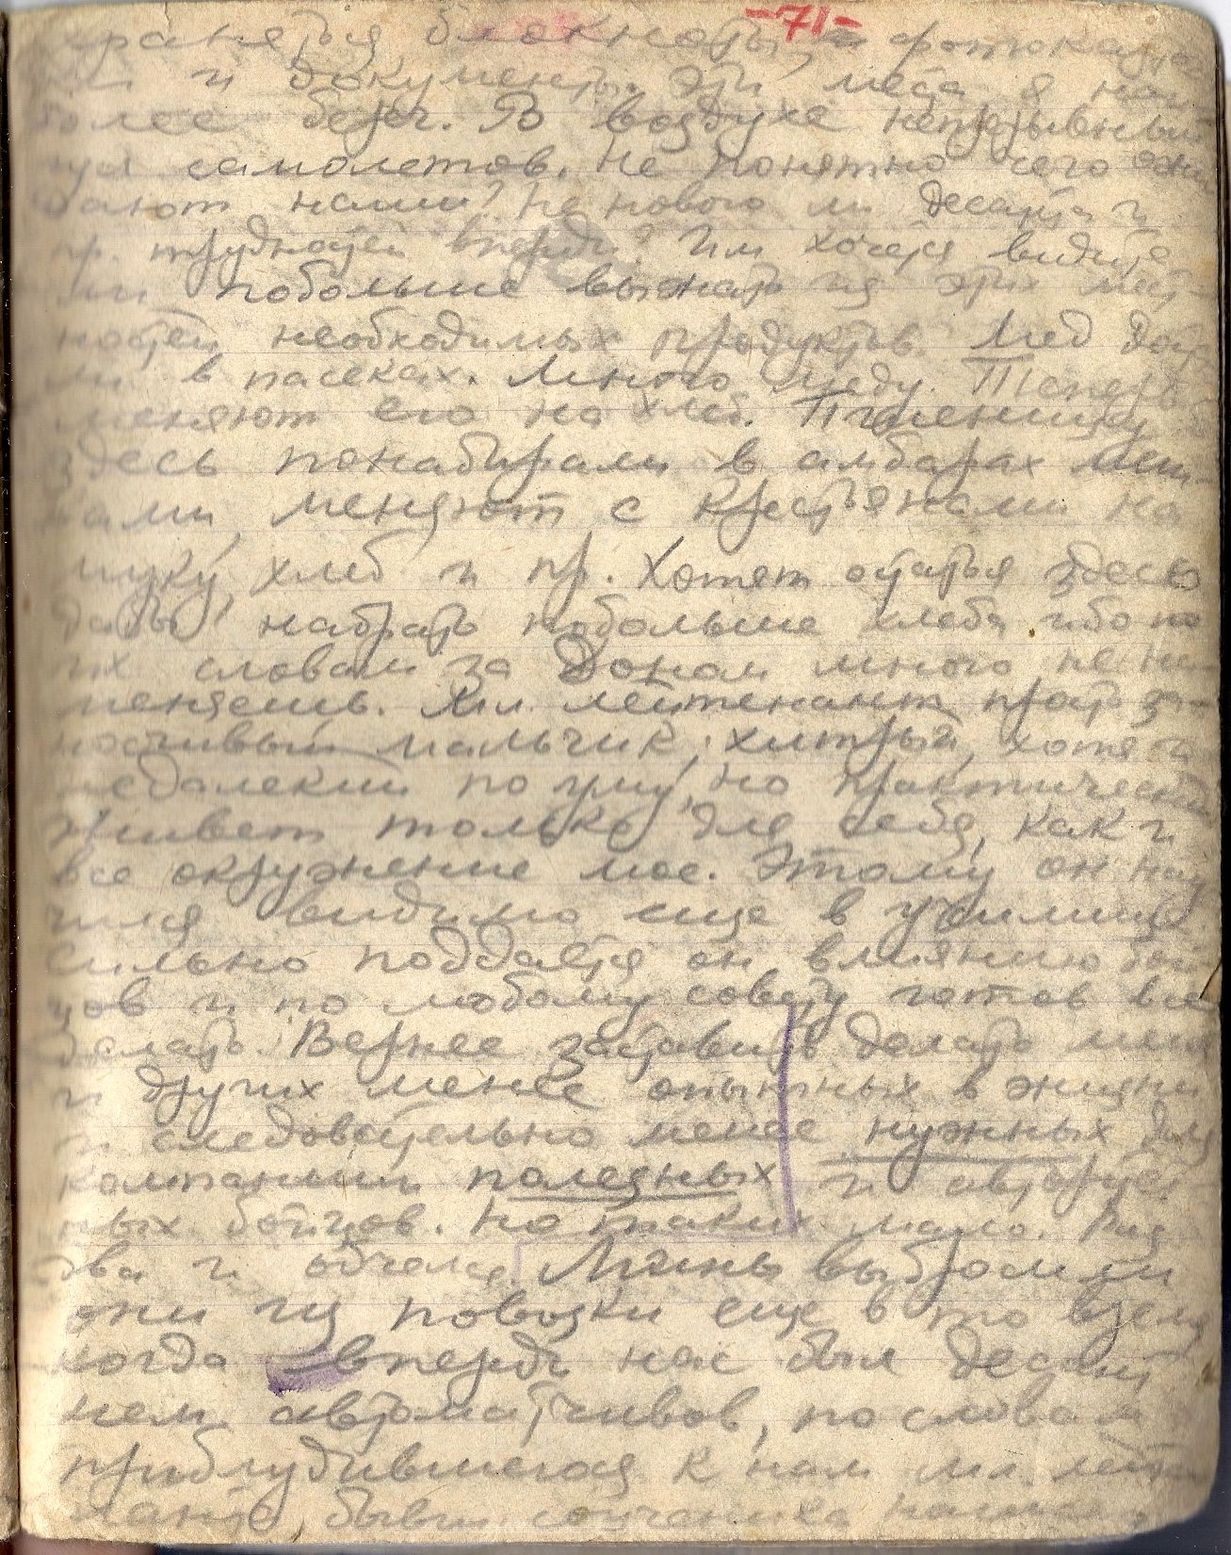 -71-
хранятся блокноты, и фотокарточ
ки и документы. Эти места я наи
более берег. В воздухе непрерывный
гул самолетов. Не понятно чего ожи
дают наши? Не нового ли десанта и
пр. трудностей впереди? Им хочется видите
ли побольше выжать из этих мест-
ностей необходимых продуктов. Мед
в пасеках. Много меду. Теперь
меняют его на хлеб. Пшеницу
здесь понабирали в амбарах меш-
ками, меняют с крестьянами на
муку, хлеб и пр. Хотят остаться здесь
дабы набрать побольше хлеба ибо по
их словам за Доном много не на
меняешь. Мл. лейтенант прост за-
носчивый мальчик, хитрый, хотя и
недалекий по уму, но практический
Живет только для себя, как и
все окружение мое. Этому он нау
чился видимо еще в училище
Сильно поддается он влиянию бой
цов и по любому совету готов все
делать. Вернее заставить делать меня
и других менее опытных в жизни
и следовательно менее нужных для
компании полезных и авторитет
ных бойцов. Но таких мало. Раз
два и обчелся. Мины выбросили
они из повозки еще в то время
когда впереди нас был десант
нем. автоматчиков, по словам
приблудившегося к нам мл. лейте
нанта, бывш. соученика нашего